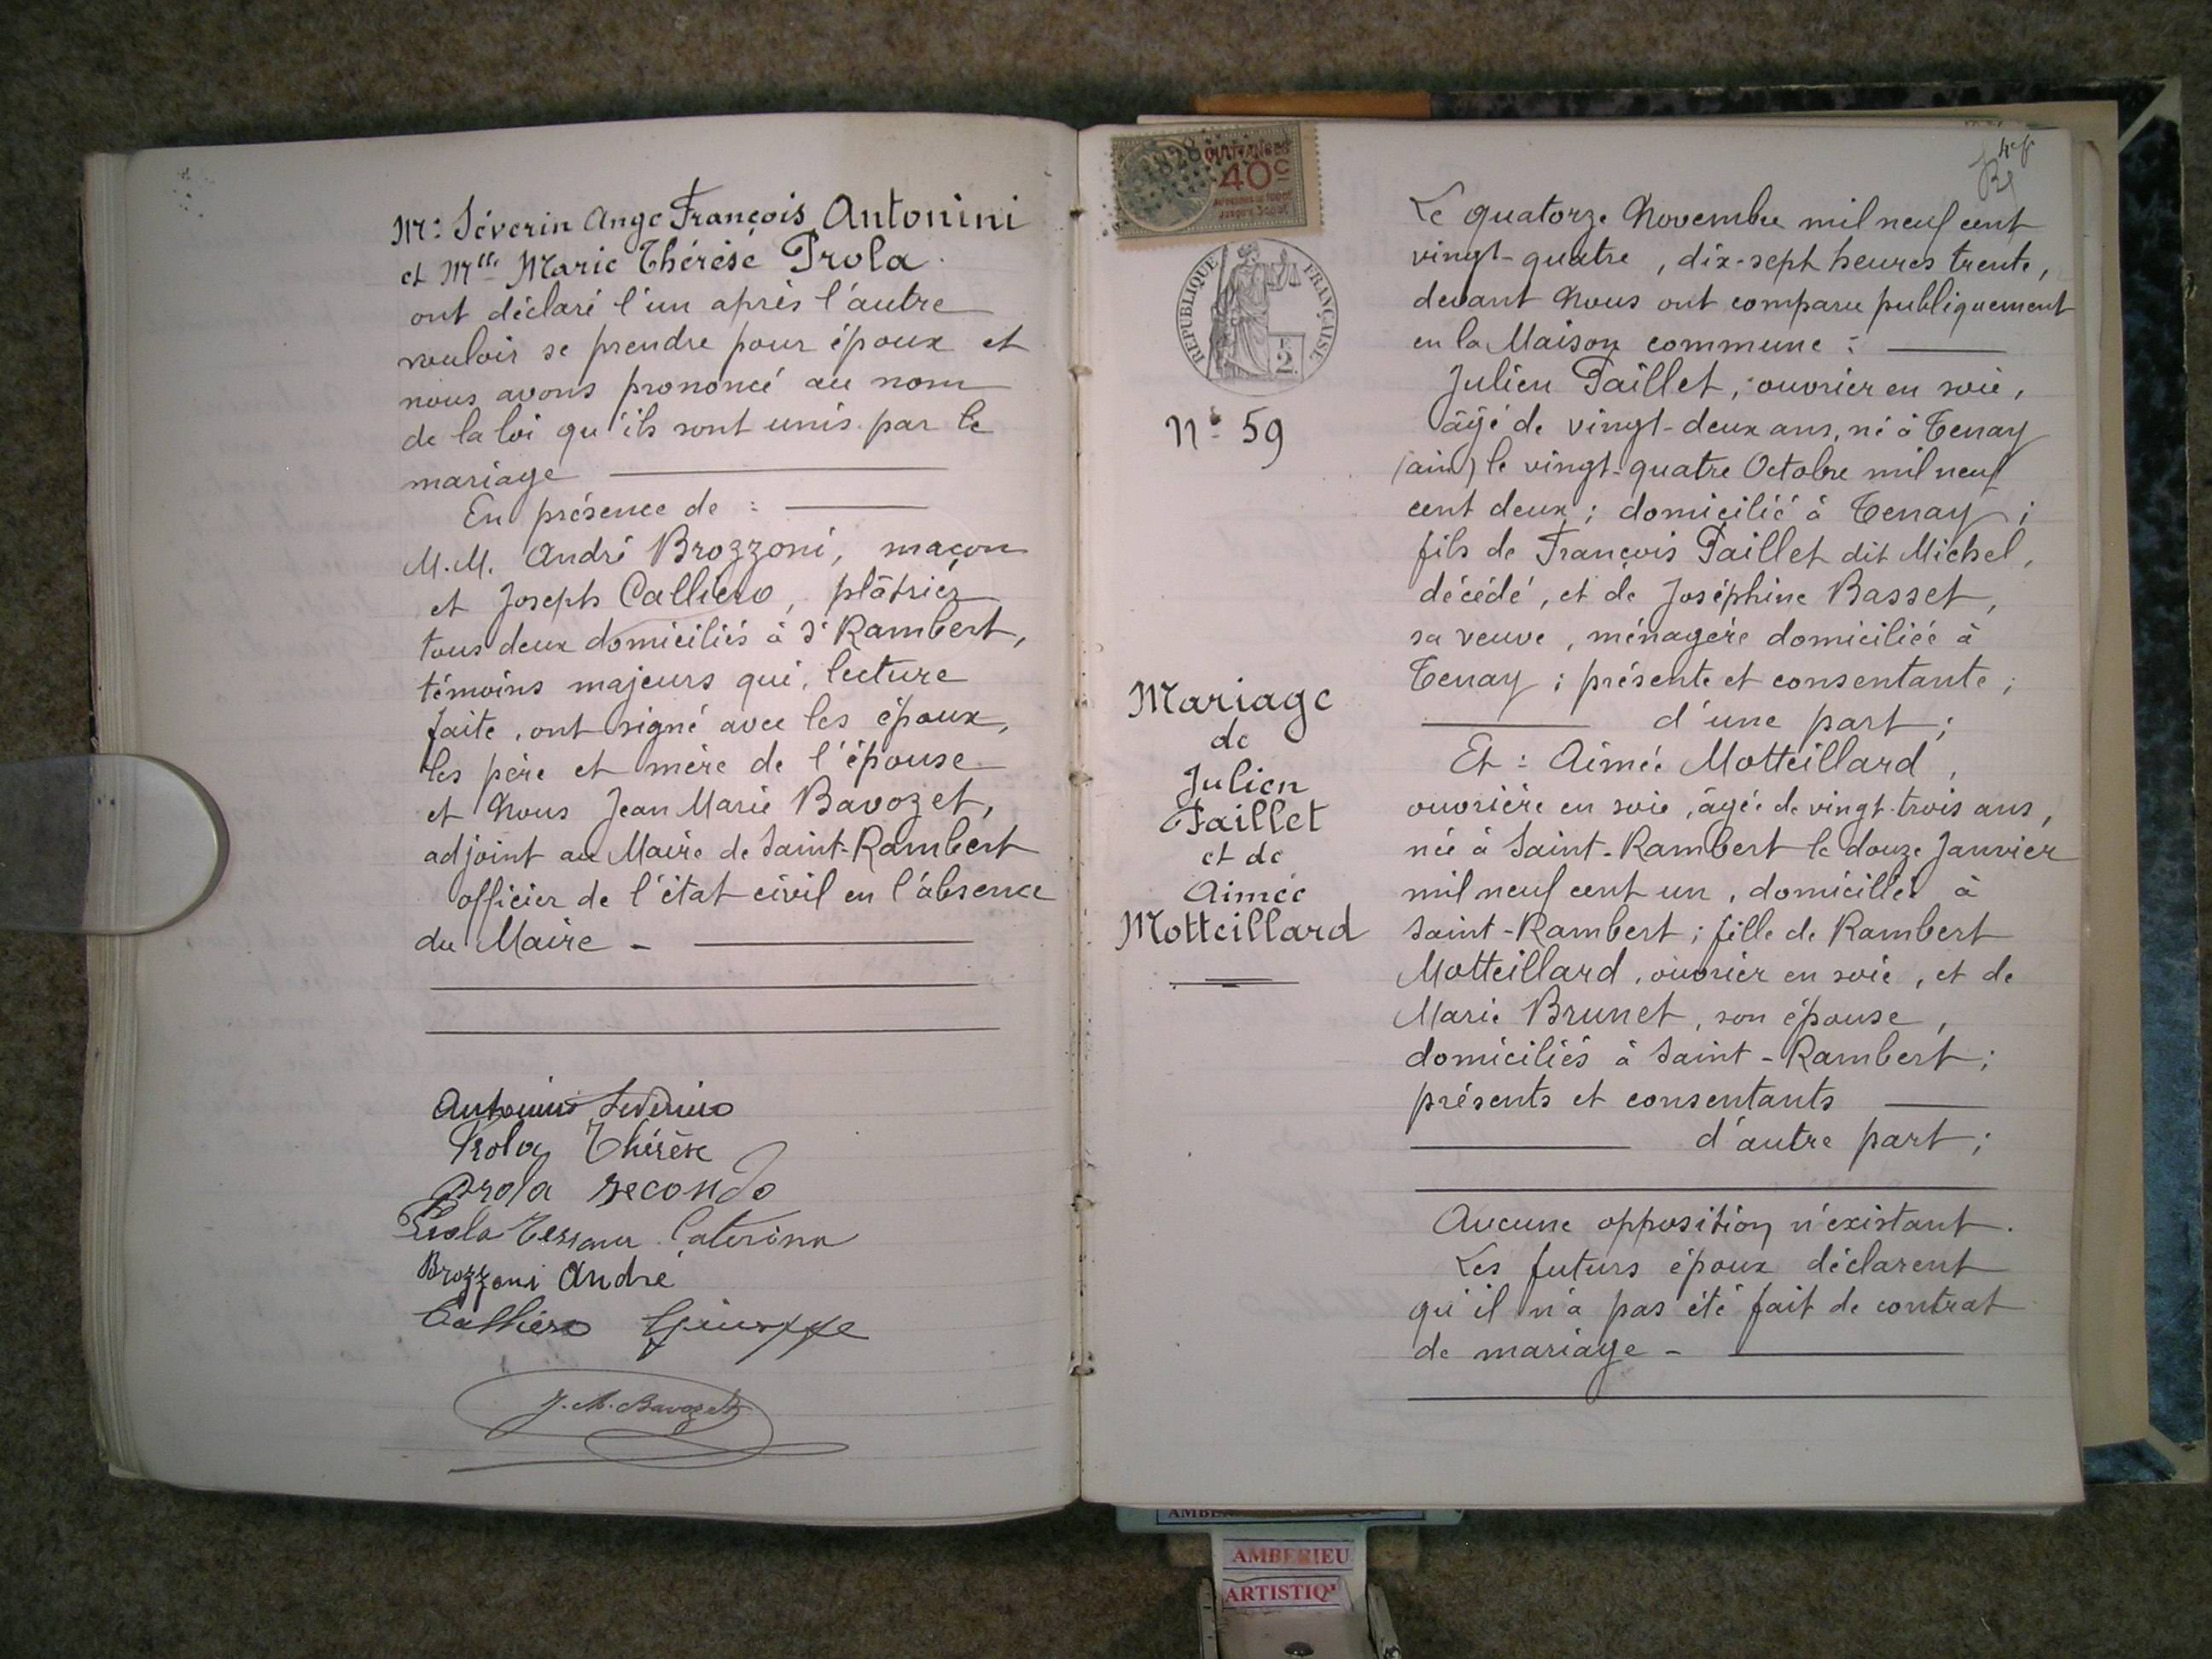 Mr: Séverin Ange François Antonini
et Mlle Marie Thérèse Prola.
ont déclaré l'un après l'autre
vouloir se prendre pour époux et
nous avons prononcé au nom
de la loi qu'ils sont unis par le
mariage
En présence de :
M.M. André Brozzoni, maçon
et Joseph Calliero, plâtrier
tous deux domiciliés à St Rambert,
témoins majeurs qui, lecture
faite, ont signé avec les époux,
les père et mère de l'épouse
et Nous Jean Marie Bavozet,
adjoint au Maire de Saint-Rambert
officier de l'état civil en l'absence
du Maire -
Antonini Severino
Prola Thérèse
Prola Secondo
Prola Caterina
Brozzoni André
Calliero Giuseppe
J. M. Bavozet
40c
RÉPUBLIQUE FRANÇAISE
F.
2.
N° 59
Mariage
de
Julien
Paillet
et de
Aimée
Motteillard
Le quatorze Novembre mil neuf cent
vingt-quatre, dix-sept heures trente,
devant Nous ont comparu publiquement
en la Maison commune :
Julien Paillet, ouvrier en soie,
âgé de vingt-deux ans, né à Tenay
(ain) le vingt-quatre Octobre mil neuf
cent deux ; domicilié à Tenay ;
fils de François Paillet dit Michel,
décédé, et de Joséphine Basset,
sa veuve, ménagère domiciliée à
Tenay ; présente et consentante ;
d'une part ;
Et : Aimée Motteillard,
ouvrière en soie, âgée de vingt-trois ans,
née à Saint-Rambert le douze Janvier
mil neuf cent un, domiciliée à
Saint-Rambert ; fille de Rambert
Motteillard, ouvrier en soie, et de
Marie Brunet, son épouse,
domiciliés à Saint-Rambert ;
présents et consentants
d'autre part ;
Aucune opposition n'existant.
Les futurs époux déclarent
qu'il n'a pas été fait de contrat
de mariage -
AMBERIEU
ARTISTIQ